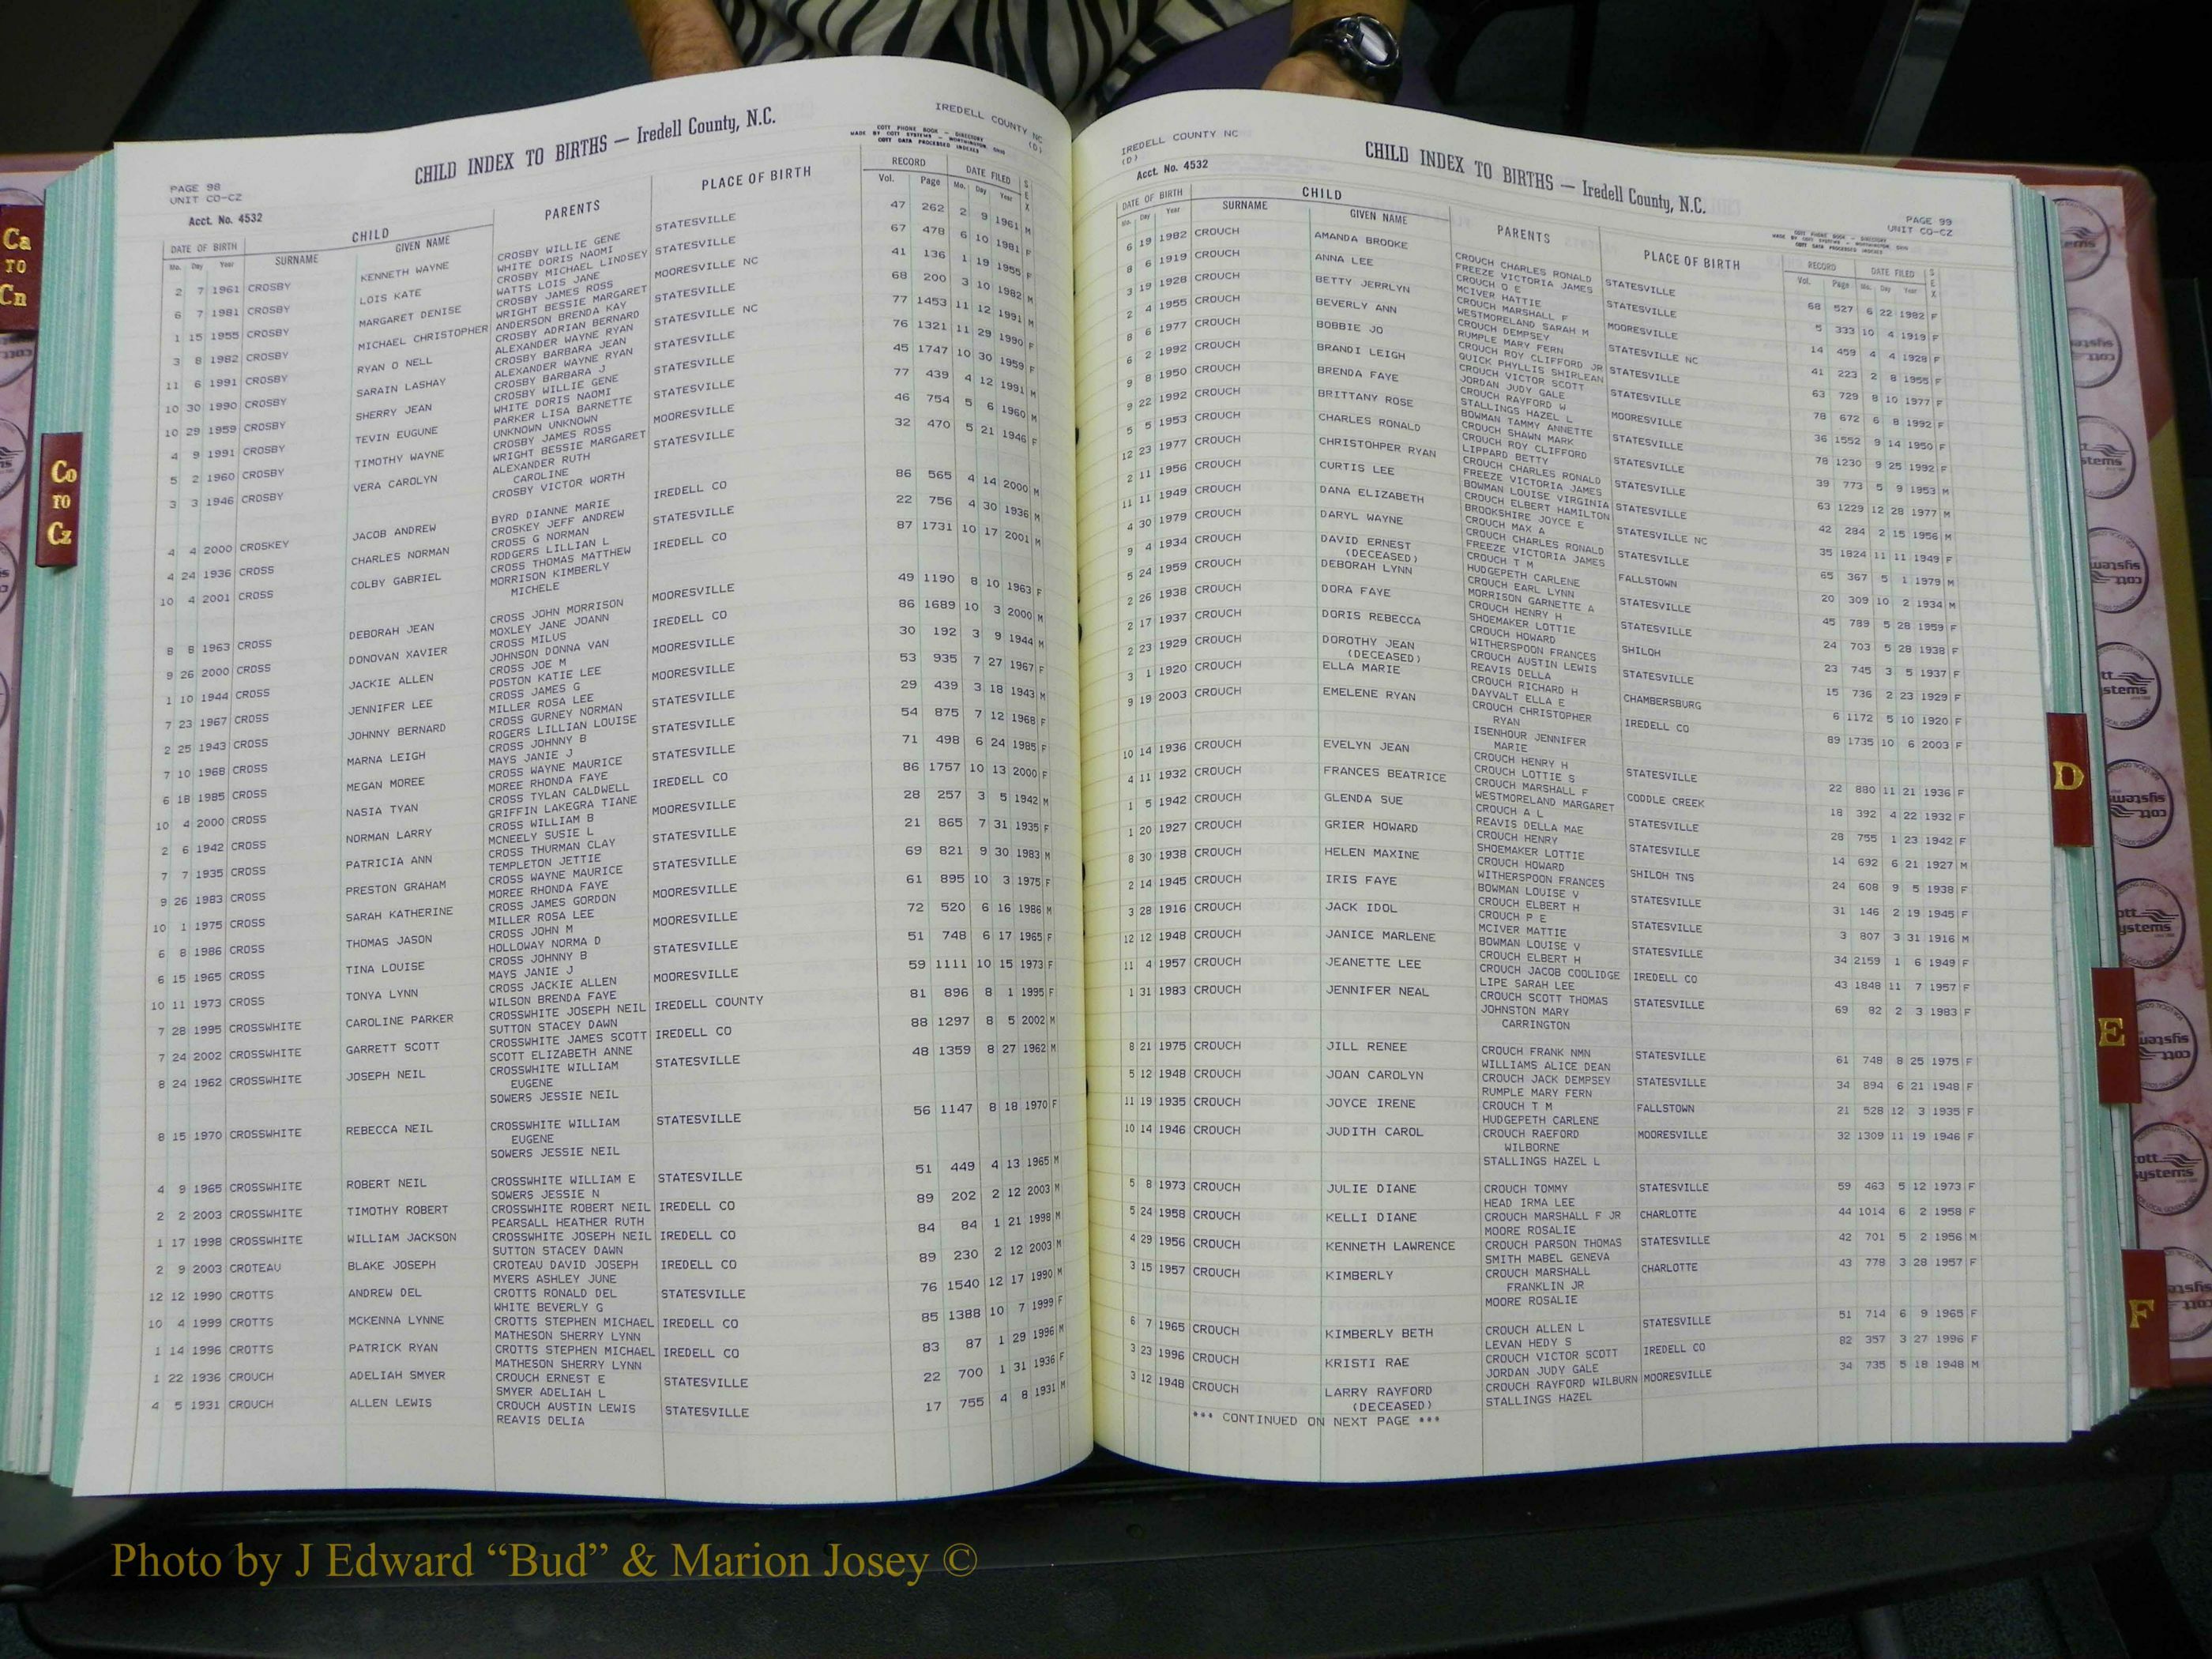 CHILD INDEX TO BIRTHS — Iredell County, N.C.
IREDELL COUNTY NC
(D)
COTT PHONE BOOK - DIRECTORY
MADE BY COTT SYSTEMS - WORTHINGTON, OHIO
COTT DATA PROCESSED INDEXES
PAGE 98
UNIT CO-CZ
Acct. No. 4532
DATE OF BIRTH CHILD PARENTS PLACE OF BIRTH RECORD DATE FILED SEX
Mo. Day Year SURNAME GIVEN NAME Vol. Page Mo. Day Year
2 7 1961 CROSBY KENNETH WAYNE CROSBY WILLIE GENE STATESVILLE 47 262 2 9 1961 M
WHITE DORIS NAOMI
6 7 1981 CROSBY LOIS KATE CROSBY MICHAEL LINDSEY STATESVILLE 67 478 6 10 1981 F
WATTS LOIS JANE
1 15 1955 CROSBY MARGARET DENISE CROSBY JAMES ROSS MOORESVILLE NC 41 136 1 19 1955 F
WRIGHT BESSIE MARGARET
3 8 1982 CROSBY MICHAEL CHRISTOPHER ANDERSON BRENDA KAY STATESVILLE 68 200 3 10 1982 M
CROSBY ADRIAN BERNARD
11 6 1991 CROSBY RYAN O NELL ALEXANDER WAYNE RYAN STATESVILLE NC 77 1453 11 12 1991 M
CROSBY BARBARA JEAN
10 30 1990 CROSBY SARAIN LASHAY ALEXANDER WAYNE RYAN STATESVILLE 76 1321 11 29 1990 F
CROSBY BARBARA J
10 29 1959 CROSBY SHERRY JEAN CROSBY WILLIE GENE STATESVILLE 45 1747 10 30 1959 F
WHITE DORIS NAOMI
4 9 1991 CROSBY TEVIN EUGUNE PARKER LISA BARNETTE STATESVILLE 77 439 4 12 1991 M
UNKNOWN UNKNOWN
5 2 1960 CROSBY TIMOTHY WAYNE CROSBY JAMES ROSS MOORESVILLE 46 754 5 6 1960 M
WRIGHT BESSIE MARGARET
3 3 1946 CROSBY VERA CAROLYN ALEXANDER RUTH STATESVILLE 32 470 5 21 1946 F
CAROLINE
CROSBY VICTOR WORTH
4 4 2000 CROSKEY JACOB ANDREW BYRD DIANNE MARIE IREDELL CO 86 565 4 14 2000 M
CROSKEY JEFF ANDREW
4 24 1936 CROSS CHARLES NORMAN CROSS G NORMAN STATESVILLE 22 756 4 30 1936 M
RODGERS LILLIAN L
10 4 2001 CROSS COLBY GABRIEL CROSS THOMAS MATTHEW IREDELL CO 87 1731 10 17 2001 M
MORRISON KIMBERLY
MICHELE
8 8 1963 CROSS DEBORAH JEAN CROSS JOHN MORRISON MOORESVILLE 49 1190 8 10 1963 F
MOXLEY JANE JOANN
9 26 2000 CROSS DONOVAN XAVIER CROSS MILUS IREDELL CO 86 1689 10 3 2000 M
JOHNSON DONNA VAN
1 10 1944 CROSS JACKIE ALLEN CROSS JOE M MOORESVILLE 30 192 3 9 1944 M
POSTON KATIE LEE
7 23 1967 CROSS JENNIFER LEE CROSS JAMES G MOORESVILLE 53 935 7 27 1967 F
MILLER ROSA LEE
2 25 1943 CROSS JOHNNY BERNARD CROSS GURNEY NORMAN STATESVILLE 29 439 3 18 1943 M
ROGERS LILLIAN LOUISE
7 10 1968 CROSS MARNA LEIGH CROSS JOHNNY B STATESVILLE 54 875 7 12 1968 F
MAYS JANIE J
6 18 1985 CROSS MEGAN MOREE CROSS WAYNE MAURICE STATESVILLE 71 498 6 24 1985 F
MOREE RHONDA FAYE
10 4 2000 CROSS NASIA TYAN CROSS TYLAN CALDWELL IREDELL CO 86 1757 10 13 2000 F
GRIFFIN LAKEGRA TIANE
2 6 1942 CROSS NORMAN LARRY CROSS WILLIAM B MOORESVILLE 28 257 3 5 1942 M
MCNEELY SUSIE L
7 7 1935 CROSS PATRICIA ANN CROSS THURMAN CLAY STATESVILLE 21 865 7 31 1935 F
TEMPLETON JETTIE
9 26 1983 CROSS PRESTON GRAHAM CROSS WAYNE MAURICE STATESVILLE 69 821 9 30 1983 M
MOREE RHONDA FAYE
10 1 1975 CROSS SARAH KATHERINE CROSS JAMES GORDON MOORESVILLE 61 895 10 3 1975 F
MILLER ROSA LEE
6 8 1986 CROSS THOMAS JASON CROSS JOHN M MOORESVILLE 72 520 6 16 1986 M
HOLLOWAY NORMA D
6 15 1965 CROSS TINA LOUISE CROSS JOHNNY B STATESVILLE 51 748 6 17 1965 F
MAYS JANIE J
10 11 1973 CROSS TONYA LYNN CROSS JACKIE ALLEN MOORESVILLE 59 1111 10 15 1973 F
WILSON BRENDA FAYE
7 28 1995 CROSSWHITE CAROLINE PARKER CROSSWHITE JOSEPH NEIL IREDELL COUNTY 81 896 8 1 1995 F
SUTTON STACEY DAWN
7 24 2002 CROSSWHITE GARRETT SCOTT CROSSWHITE JAMES SCOTT IREDELL CO 88 1297 8 5 2002 M
SCOTT ELIZABETH ANNE
8 24 1962 CROSSWHITE JOSEPH NEIL CROSSWHITE WILLIAM STATESVILLE 48 1359 8 27 1962 M
EUGENE
SOWERS JESSIE NEIL
8 15 1970 CROSSWHITE REBECCA NEIL CROSSWHITE WILLIAM STATESVILLE 56 1147 8 18 1970 F
EUGENE
SOWERS JESSIE NEIL
4 9 1965 CROSSWHITE ROBERT NEIL CROSSWHITE WILLIAM E STATESVILLE 51 449 4 13 1965 M
SOWERS JESSIE N
2 2 2003 CROSSWHITE TIMOTHY ROBERT CROSSWHITE ROBERT NEIL IREDELL CO 89 202 2 12 2003 M
PEARSALL HEATHER RUTH
1 17 1998 CROSSWHITE WILLIAM JACKSON CROSSWHITE JOSEPH NEIL IREDELL CO 84 84 1 21 1998 M
SUTTON STACEY DAWN
2 9 2003 CROTEAU BLAKE JOSEPH CROTEAU DAVID JOSEPH IREDELL CO 89 230 2 12 2003 M
MYERS ASHLEY JUNE
12 12 1990 CROTTS ANDREW DEL CROTTS RONALD DEL STATESVILLE 76 1540 12 17 1990 M
WHITE BEVERLY G
10 4 1999 CROTTS MCKENNA LYNNE CROTTS STEPHEN MICHAEL IREDELL CO 85 1388 10 7 1999 F
MATHESON SHERRY LYNN
1 14 1996 CROTTS PATRICK RYAN CROTTS STEPHEN MICHAEL IREDELL CO 83 87 1 29 1996 M
MATHESON SHERRY LYNN
1 22 1936 CROUCH ADELIAH SMYER CROUCH ERNEST E STATESVILLE 22 700 1 31 1936 F
SMYER ADELIAH L
4 5 1931 CROUCH ALLEN LEWIS CROUCH AUSTIN LEWIS STATESVILLE 17 755 4 8 1931 M
REAVIS DELIA
IREDELL COUNTY NC
(D)
Acct. No. 4532
CHILD INDEX TO BIRTHS — Iredell County, N.C.
PAGE 99
UNIT CO-CZ
COTT PHONE BOOK - DIRECTORY
MADE BY COTT SYSTEMS - WORTHINGTON, OHIO
COTT DATA PROCESSED INDEXES
DATE OF BIRTH CHILD PARENTS PLACE OF BIRTH RECORD DATE FILED SEX
Mo. Day Year SURNAME GIVEN NAME Vol. Page Mo. Day Year
6 19 1982 CROUCH AMANDA BROOKE CROUCH CHARLES RONALD STATESVILLE 68 527 6 22 1982 F
FREEZE VICTORIA JAMES
8 6 1919 CROUCH ANNA LEE CROUCH O E STATESVILLE 5 333 10 4 1919 F
MCIVER HATTIE
3 19 1928 CROUCH BETTY JERRLYN CROUCH MARSHALL F MOORESVILLE 14 459 4 4 1928 F
WESTMORELAND SARAH M
2 4 1955 CROUCH BEVERLY ANN CROUCH DEMPSEY STATESVILLE NC 41 223 2 8 1955 F
RUMPLE MARY FERN
8 6 1977 CROUCH BOBBIE JO CROUCH ROY CLIFFORD JR STATESVILLE 63 729 8 10 1977 F
QUICK PHYLLIS SHIRLEAN
6 2 1992 CROUCH BRANDI LEIGH CROUCH VICTOR SCOTT STATESVILLE 78 672 6 8 1992 F
JORDAN JUDY GALE
9 8 1950 CROUCH BRENDA FAYE CROUCH RAYFORD W MOORESVILLE 36 1552 9 14 1950 F
STALLINGS HAZEL L
9 22 1992 CROUCH BRITTANY ROSE BOWMAN TAMMY ANNETTE STATESVILLE 78 1230 9 25 1992 F
CROUCH SHAWN MARK
5 5 1953 CROUCH CHARLES RONALD CROUCH ROY CLIFFORD STATESVILLE 39 773 5 9 1953 M
LIPPARD BETTY
12 23 1977 CROUCH CHRISTOHPER RYAN CROUCH CHARLES RONALD STATESVILLE 63 1229 12 28 1977 M
FREEZE VICTORIA JAMES
2 11 1956 CROUCH CURTIS LEE BOWMAN LOUISE VIRGINIA STATESVILLE 42 284 2 15 1956 M
CROUCH ELBERT HAMILTON
11 11 1949 CROUCH DANA ELIZABETH BROOKSHIRE JOYCE E STATESVILLE NC 35 1824 11 11 1949 F
CROUCH MAX A
4 30 1979 CROUCH DARYL WAYNE CROUCH CHARLES RONALD STATESVILLE 65 367 5 1 1979 M
FREEZE VICTORIA JAMES
9 4 1934 CROUCH DAVID ERNEST CROUCH T M FALLSTOWN 20 309 10 2 1934 M
(DECEASED) HUDGEPETH CARLENE
5 24 1959 CROUCH DEBORAH LYNN CROUCH EARL LYNN STATESVILLE 45 789 5 28 1959 F
MORRISON GARNETTE A
2 26 1938 CROUCH DORA FAYE CROUCH HENRY H STATESVILLE 24 703 5 28 1938 F
SHOEMAKER LOTTIE
2 17 1937 CROUCH DORIS REBECCA CROUCH HOWARD SHILOH 23 745 3 5 1937 F
WITHERSPOON FRANCES
2 23 1929 CROUCH DOROTHY JEAN CROUCH AUSTIN LEWIS STATESVILLE 15 736 2 23 1929 F
(DECEASED) REAVIS DELLA
3 1 1920 CROUCH ELLA MARIE CROUCH RICHARD H CHAMBERSBURG 6 1172 5 10 1920 F
DAYVALT ELLA E
9 19 2003 CROUCH EMELENE RYAN CROUCH CHRISTOPHER IREDELL CO 89 1735 10 6 2003 F
RYAN
ISENHOUR JENNIFER
MARIE
10 14 1936 CROUCH EVELYN JEAN CROUCH HENRY H STATESVILLE 22 880 11 21 1936 F
CROUCH LOTTIE S
4 11 1932 CROUCH FRANCES BEATRICE CROUCH MARSHALL F CODDLE CREEK 18 392 4 22 1932 F
WESTMORELAND MARGARET
1 5 1942 CROUCH GLENDA SUE CROUCH A L STATESVILLE 28 755 1 23 1942 F
REAVIS DELLA MAE
1 20 1927 CROUCH GRIER HOWARD CROUCH HENRY STATESVILLE 14 692 6 21 1927 M
SHOEMAKER LOTTIE
8 30 1938 CROUCH HELEN MAXINE CROUCH HOWARD SHILOH TNS 24 608 9 5 1938 F
WITHERSPOON FRANCES
2 14 1945 CROUCH IRIS FAYE BOWMAN LOUISE V STATESVILLE 31 146 2 19 1945 F
CROUCH ELBERT H
3 28 1916 CROUCH JACK IDOL CROUCH P E STATESVILLE 3 807 3 31 1916 M
MCIVER MATTIE
12 12 1948 CROUCH JANICE MARLENE BOWMAN LOUISE V STATESVILLE 34 2159 1 6 1949 F
CROUCH ELBERT H
11 4 1957 CROUCH JEANETTE LEE CROUCH JACOB COOLIDGE IREDELL CO 43 1848 11 7 1957 F
LIPE SARAH LEE
1 31 1983 CROUCH JENNIFER NEAL CROUCH SCOTT THOMAS STATESVILLE 69 82 2 3 1983 F
JOHNSTON MARY
CARRINGTON
8 21 1975 CROUCH JILL RENEE CROUCH FRANK NMN STATESVILLE 61 748 8 25 1975 F
WILLIAMS ALICE DEAN
5 12 1948 CROUCH JOAN CAROLYN CROUCH JACK DEMPSEY STATESVILLE 34 894 6 21 1948 F
RUMPLE MARY FERN
11 19 1935 CROUCH JOYCE IRENE CROUCH T M FALLSTOWN 21 528 12 3 1935 F
HUDGEPETH CARLENE
10 14 1946 CROUCH JUDITH CAROL CROUCH RAEFORD MOORESVILLE 32 1309 11 19 1946 F
WILBORNE
STALLINGS HAZEL L
5 8 1973 CROUCH JULIE DIANE CROUCH TOMMY STATESVILLE 59 463 5 12 1973 F
HEAD IRMA LEE
5 24 1958 CROUCH KELLI DIANE CROUCH MARSHALL F JR CHARLOTTE 44 1014 6 2 1958 F
MOORE ROSALIE
4 29 1956 CROUCH KENNETH LAWRENCE CROUCH PARSON THOMAS STATESVILLE 42 701 5 2 1956 M
SMITH MABEL GENEVA
3 15 1957 CROUCH KIMBERLY CROUCH MARSHALL CHARLOTTE 43 778 3 28 1957 F
FRANKLIN JR
MOORE ROSALIE
6 7 1965 CROUCH KIMBERLY BETH CROUCH ALLEN L STATESVILLE 51 714 6 9 1965 F
LEVAN HEDY S
3 23 1996 CROUCH KRISTI RAE CROUCH VICTOR SCOTT IREDELL CO 82 357 3 27 1996 F
JORDAN JUDY GALE
3 12 1948 CROUCH LARRY RAYFORD CROUCH RAYFORD WILBURN MOORESVILLE 34 735 5 18 1948 M
(DECEASED) STALLINGS HAZEL
*** CONTINUED ON NEXT PAGE ***
Ca TO Cn
Co TO Cz
D
E
F
Photo by J Edward “Bud” & Marion Josey ©